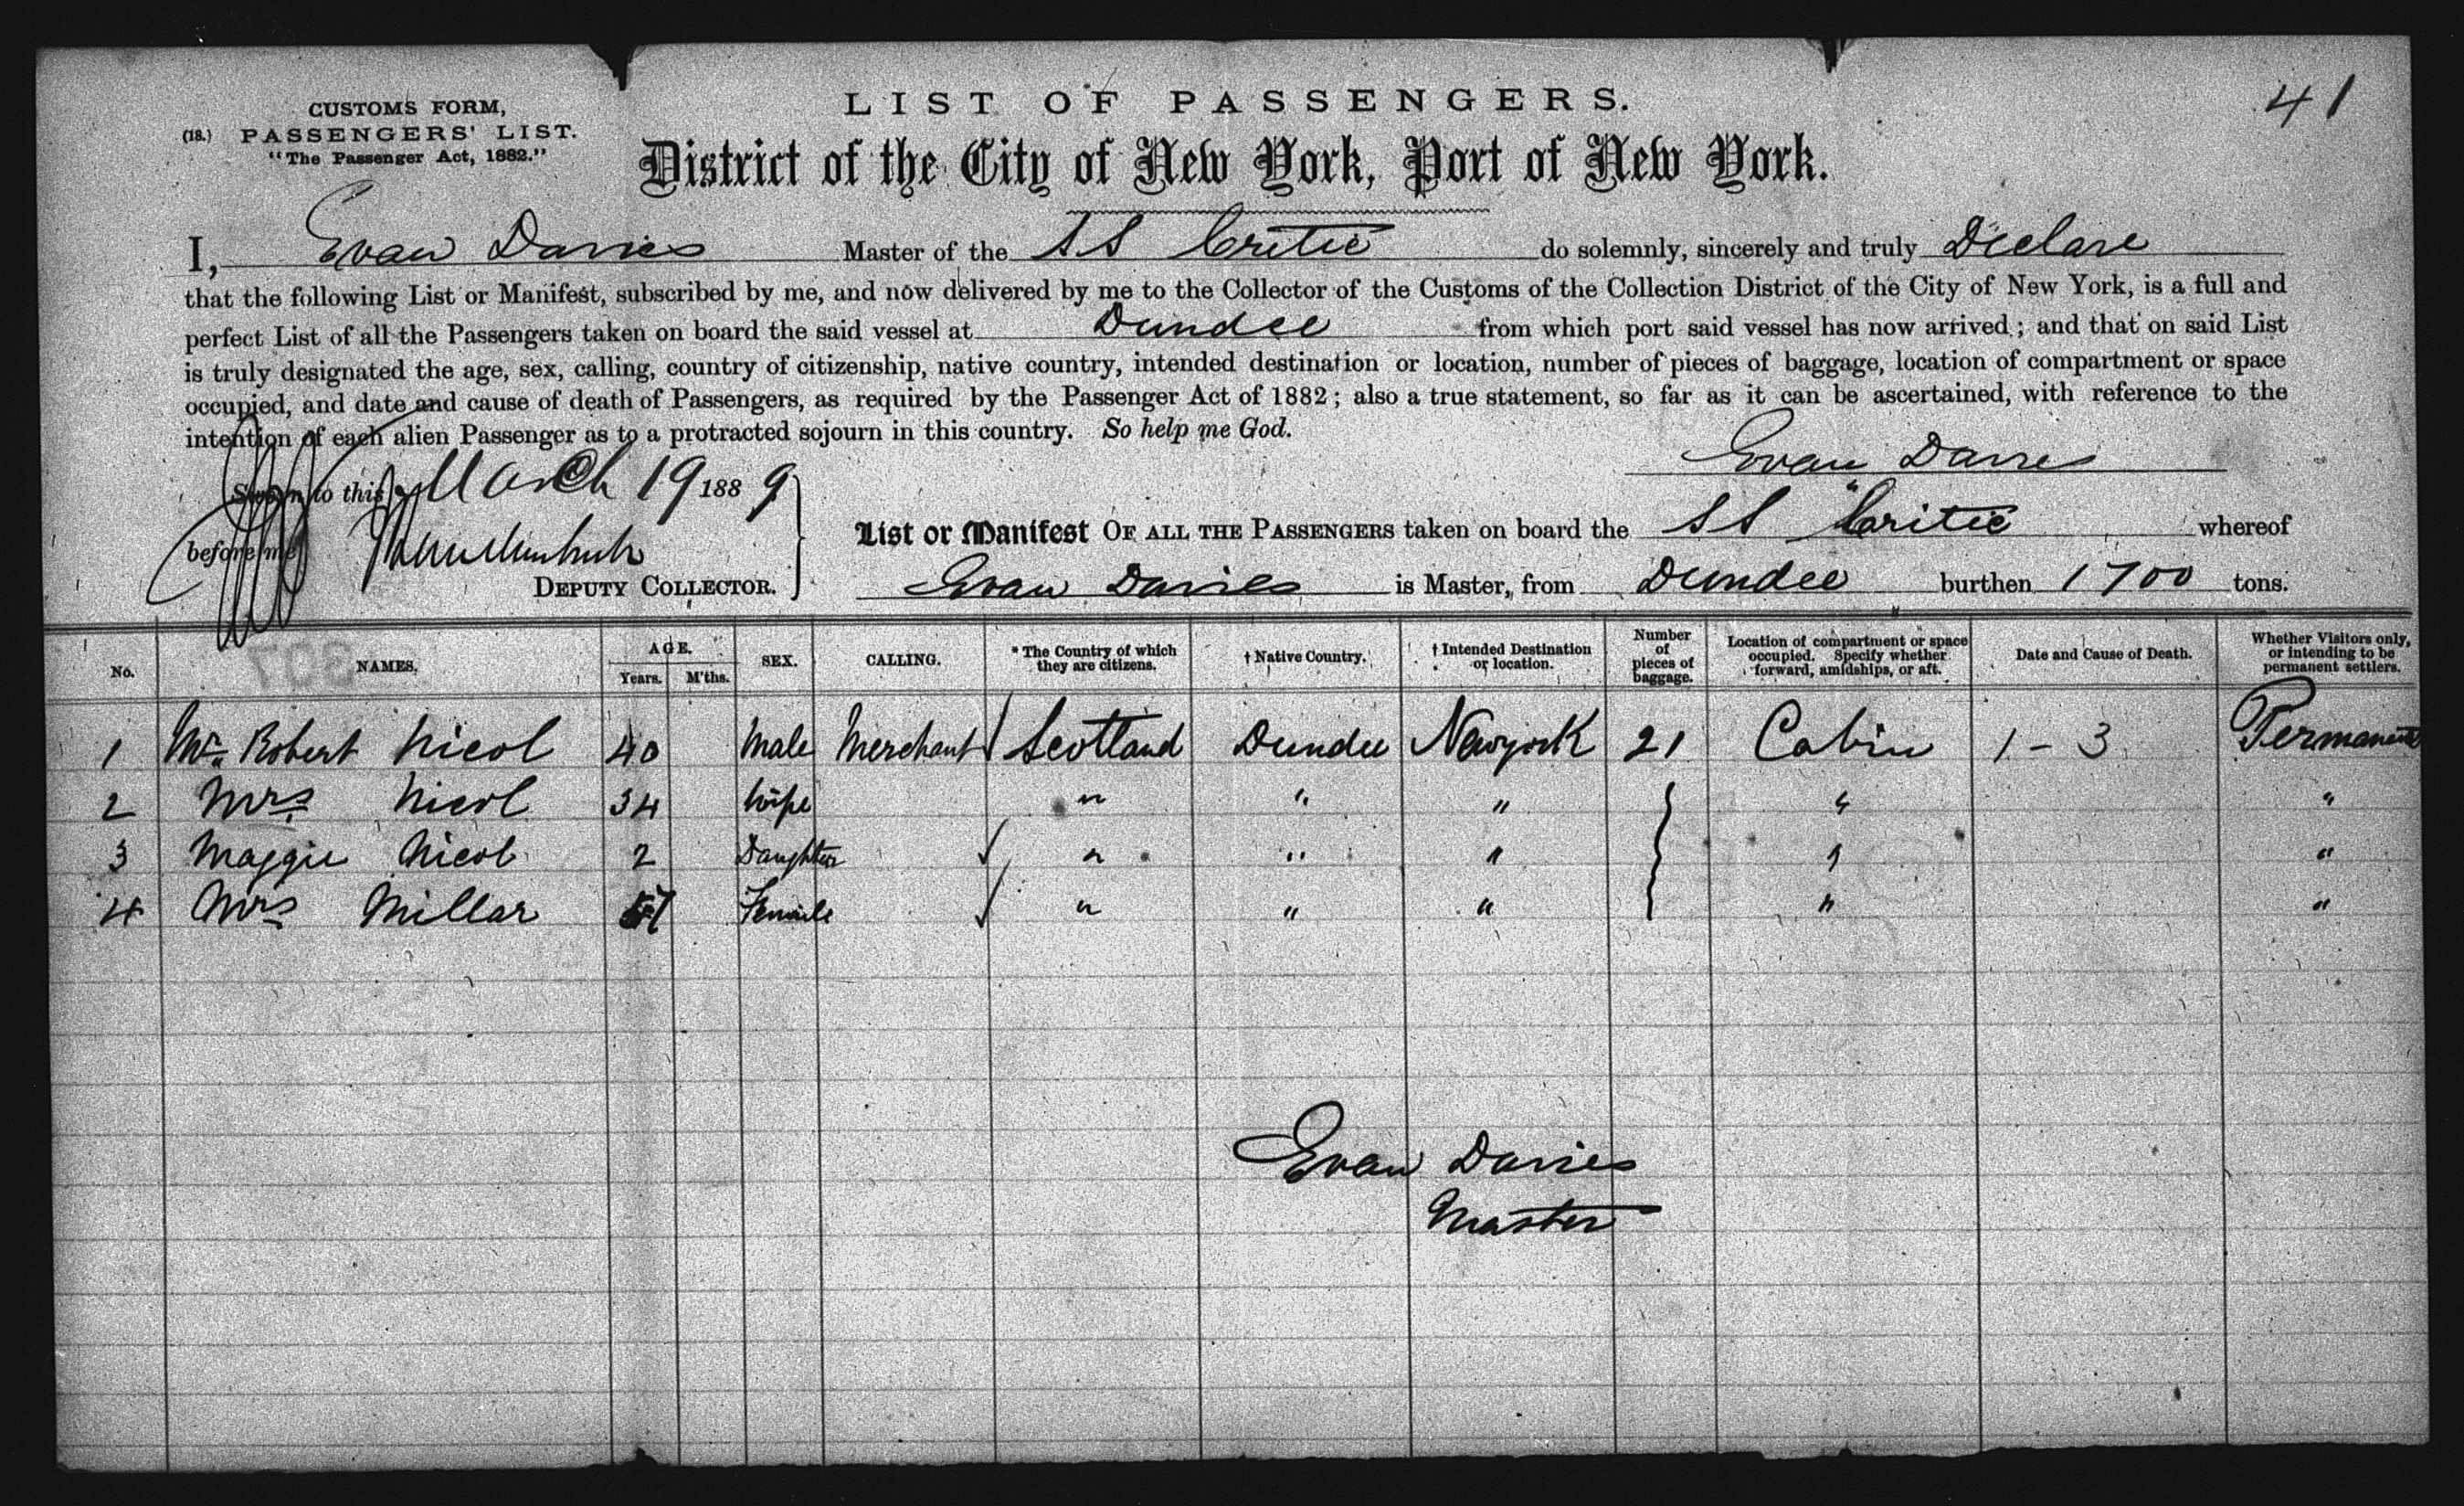 41
CUSTOMS FORM,
(18.) PASSENGERS' LIST.
"The Passenger Act, 1882."
LIST OF PASSENGERS.
District of the City of New York, Port of New York.
I, Evan Davies Master of the SS Critic do solemnly, sincerely and truly Declare
that the following List or Manifest, subscribed by me, and now delivered by me to the Collector of the Customs of the Collection District of the City of New York, is a full and
perfect List of all the Passengers taken on board the said vessel at Dundee from which port said vessel has now arrived; and that on said List
is truly designated the age, sex, calling, country of citizenship, native country, intended destination or location, number of pieces of baggage, location of compartment or space
occupied, and date and cause of death of Passengers, as required by the Passenger Act of 1882; also a true statement, so far as it can be ascertained, with reference to the
intention of each alien Passenger as to a protracted sojourn in this country. So help me God.
Evan Davies
Sworn to this March 19 1889
before me
DEPUTY COLLECTOR.
List or Manifest OF ALL THE PASSENGERS taken on board the SS Critic whereof
Evan Davies is Master, from Dundee burthen 1700 tons.
No. NAMES. AGE. Years. M'ths. SEX. CALLING. * The Country of which they are citizens. † Native Country. † Intended Destination or location. Number of pieces of baggage. Location of compartment or space occupied. Specify whether forward, amidships, or aft. Date and Cause of Death. Whether Visitors only, or intending to be permanent settlers.
1 Mr. Robert Nicol 40 Male Merchant Scotland Dundee Newyork 21 Cabin 1 - 3 Permanent
2 Mrs Nicol 34 Wife " " " " "
3 Maggie Nicol 2 Daughter " " " " "
4 Mrs Millar Female " " " " "
Evan Davies
Master